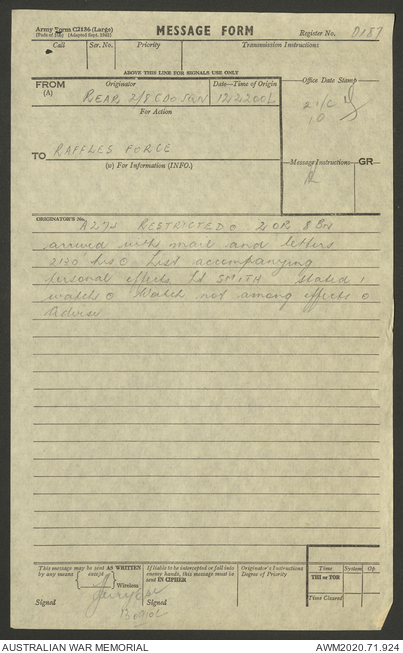 Army Form C2136 (Large)
(Pads of 100) (Adapted Sept. 1942)
MESSAGE FORM
Register No. D187
Call Ser. No. Priority Transmission Instructions
ABOVE THIS LINE FOR SIGNALS USE ONLY
FROM
(A)
Originator
REAR 2/8 CDO SQN
Date—Time of Origin
122200L
Office Date Stamp
For Action
TO RAFFLES FORCE
(w) For Information (INFO.)
Message Instructions
GR
ORIGINATOR'S No.
A274 RESTRICTED O 2 OR 8 Bn
arrived with mail and letters
2130 hrs O List accompanying
personal effects Lt SMITH stated 1
watch O Watch not among effects O
Advise
This message may be sent AS WRITTEN
by any means except Wireless
Signed
If liable to be intercepted or fall into
enemy hands, this message must be
sent IN CIPHER
Signed
Originator's Instructions
Degree of Priority
Time System Op
THI or TOR
Time Cleared
AUSTRALIAN WAR MEMORIAL
AWM2020.71.924